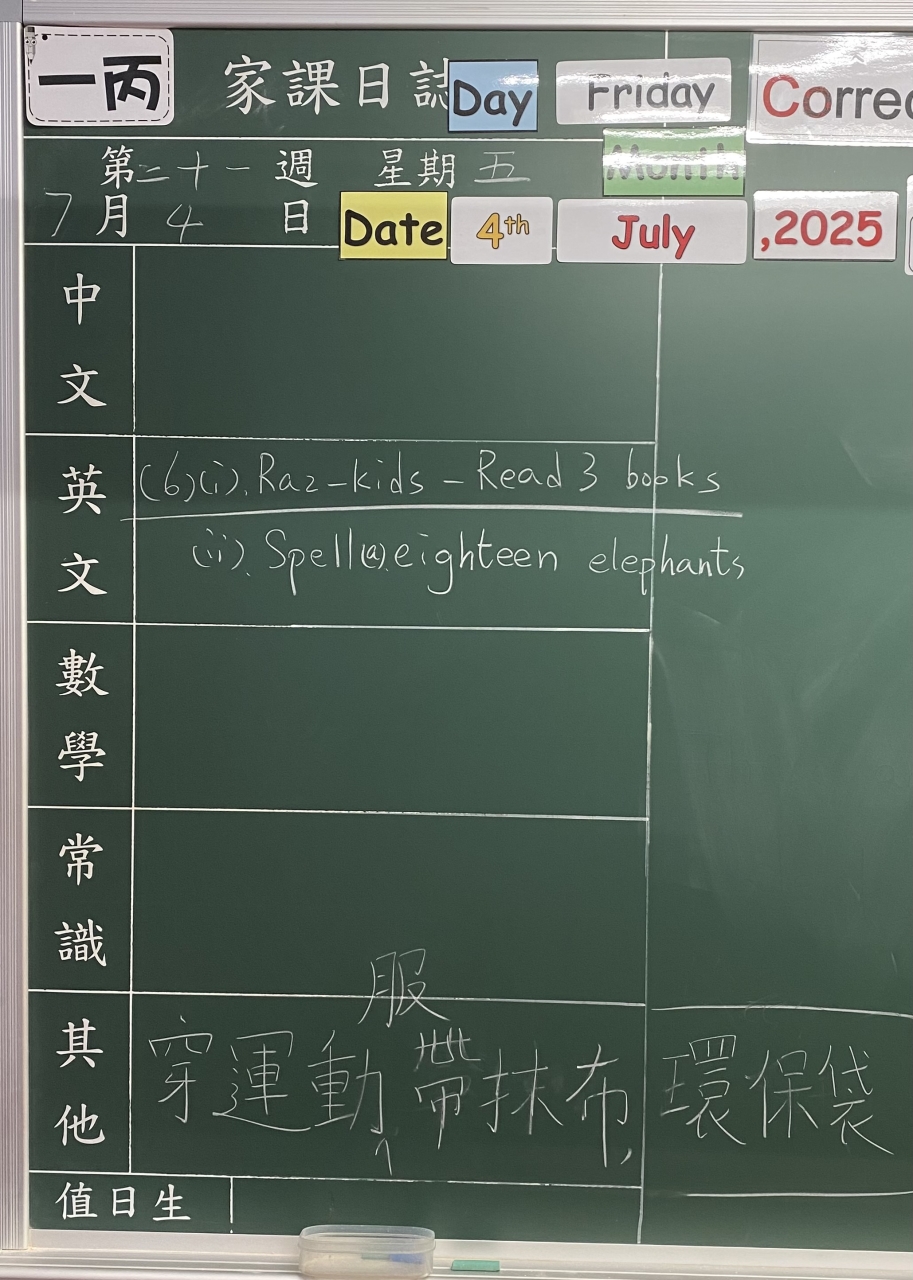 一丙 家課日誌 Day Friday Correc
第二十一週 星期五 Month
7月4日 Date 4th July ,2025
中文
英文 (6)(i). Raz-kids - Read 3 books
(ii). Spell(a). eighteen elephants
數學
常識
服
其他 穿運動^帶抹布, 環保袋
值日生